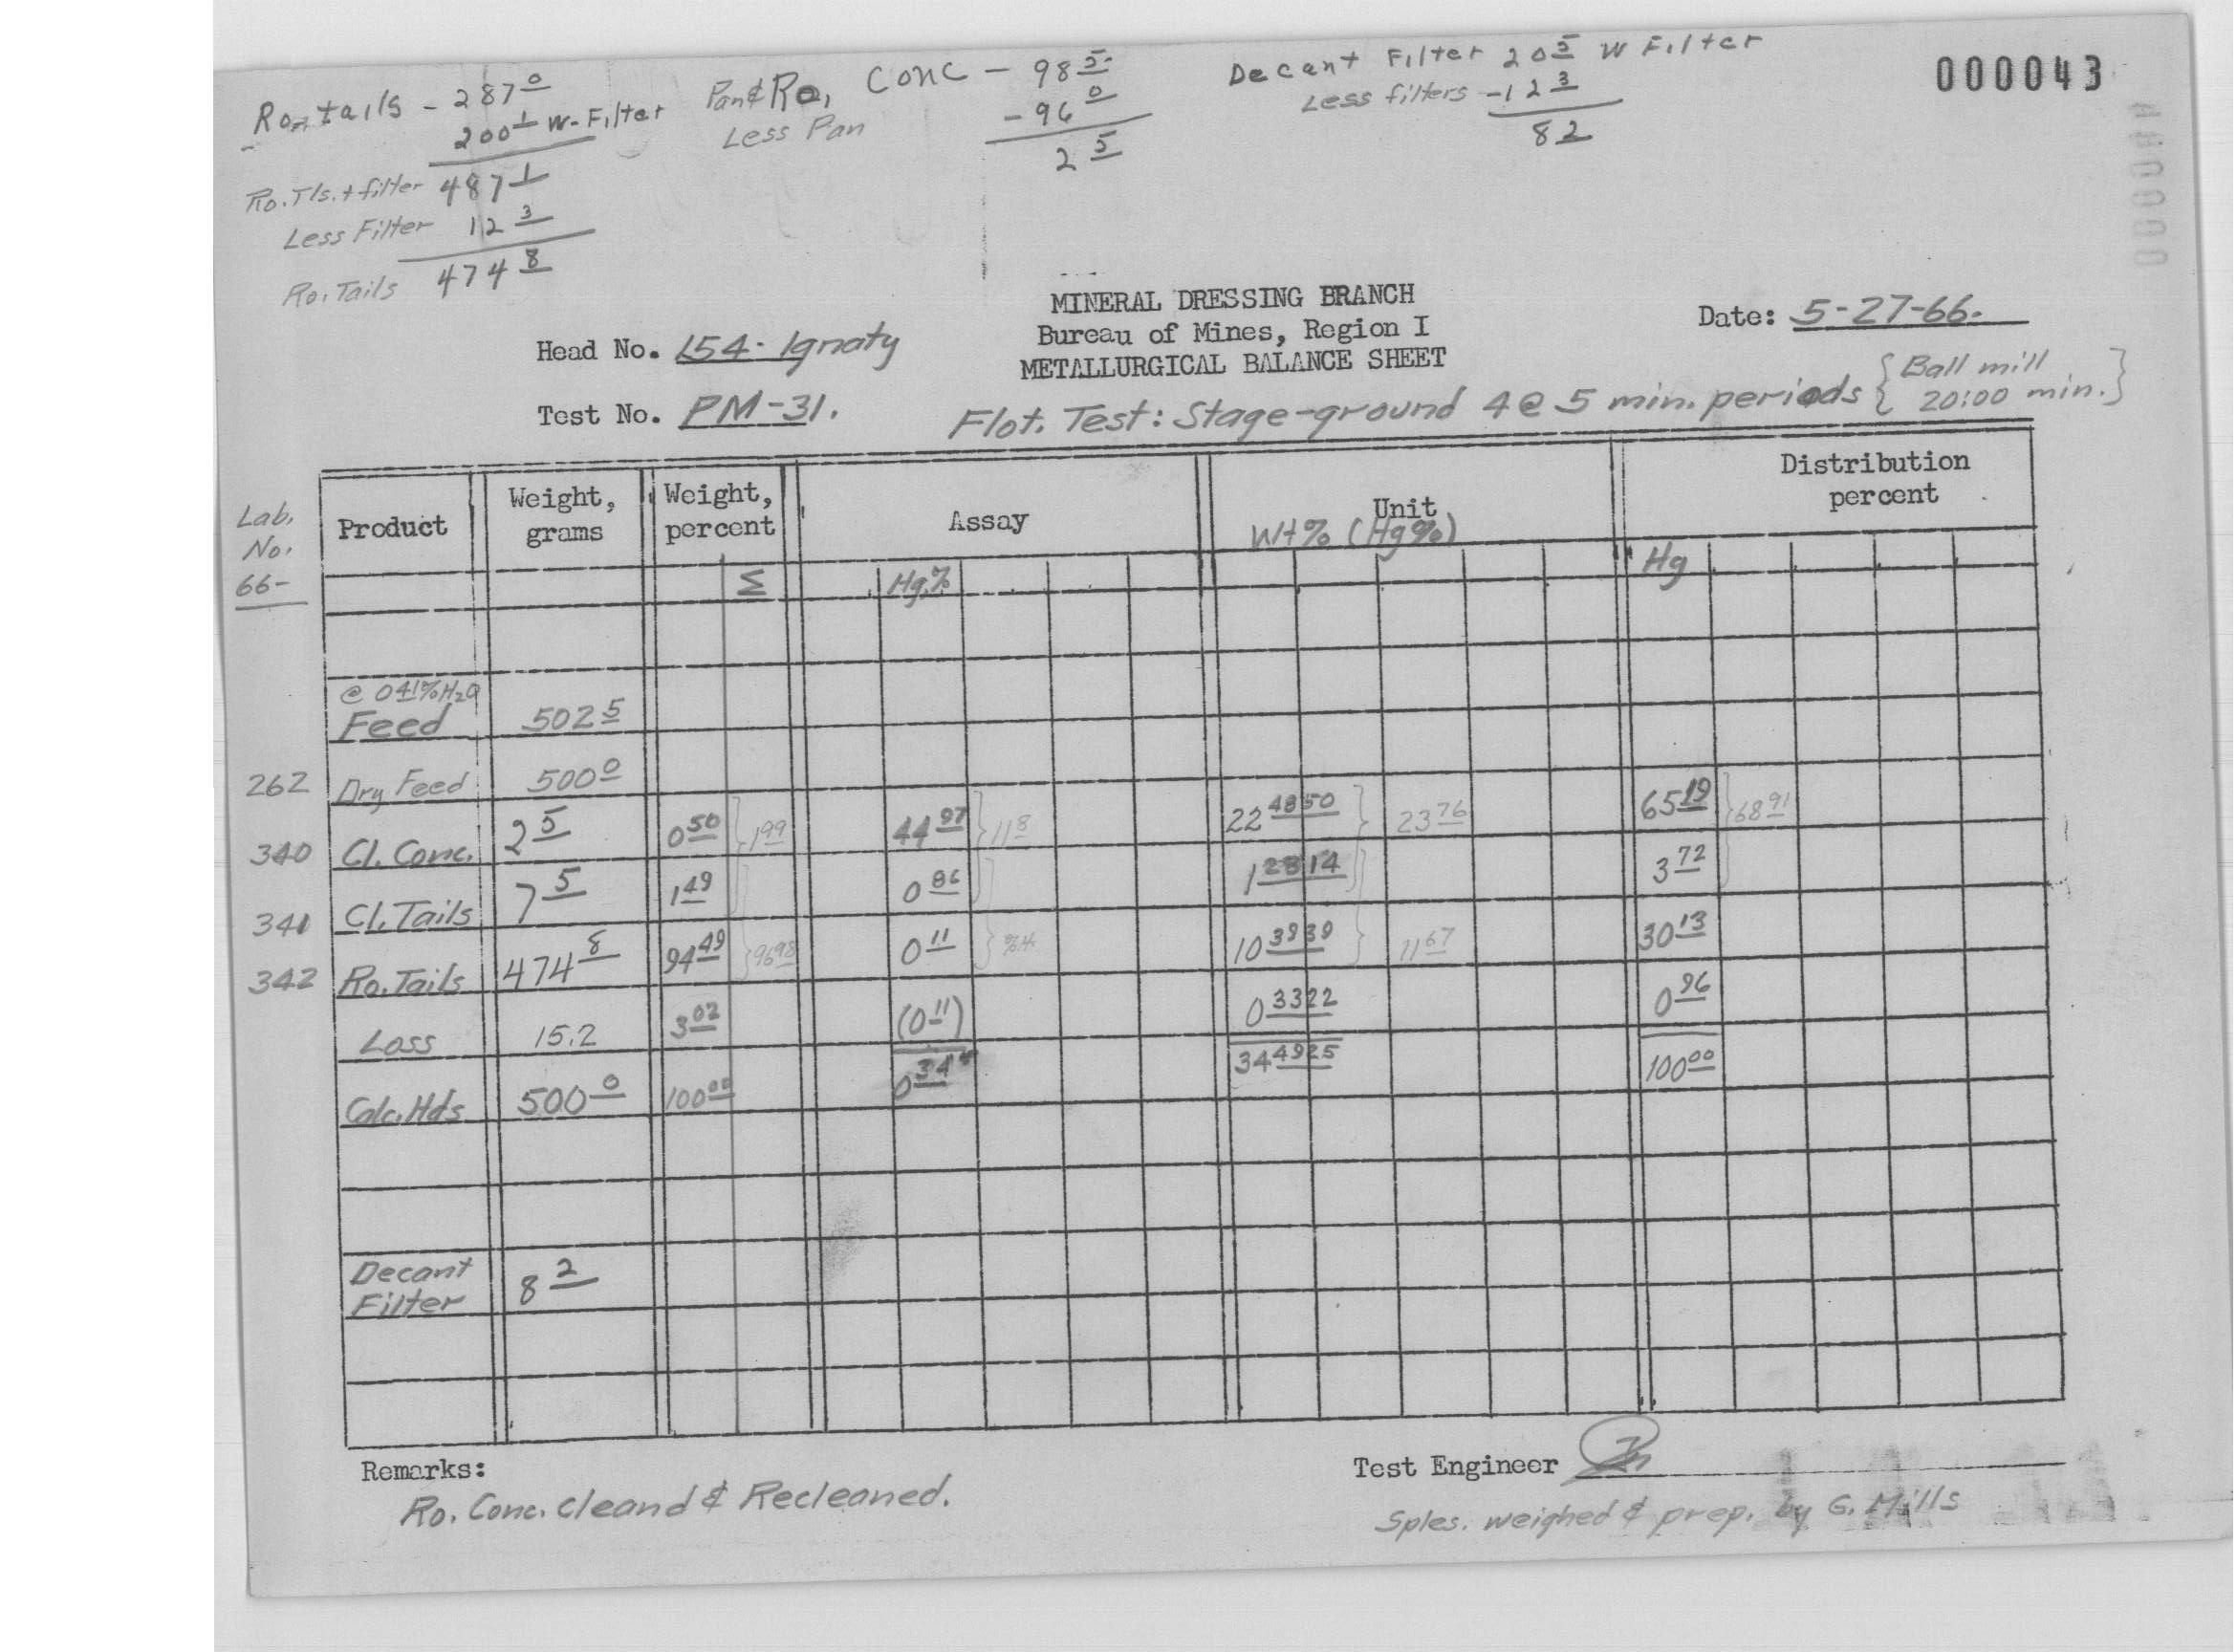 000043
Ro. tails - 287 0
200 1 W-Filter
Ro. Tls. + filter 487 1
Less Filter 12 3
Ro. Tails 474 8
Pan & Ro, Conc - 98 5
Less Pan - 96 0
2 5
Decant Filter 20 5 W Filter
Less filters -12 3
8 2
MINERAL DRESSING BRANCH
Bureau of Mines, Region I
METALLURGICAL BALANCE SHEET
Date: 5-27-66.
Head No. 154- Ignaty
Test No. PM-31.
Flot. Test: Stage-ground 4 @ 5 min. periods { Ball mill 20:00 min. }
Lab. No. 66-
Product Weight, grams Weight, percent Assay Unit Distribution percent
Wt% (Hg%)
Σ Hg% Hg
@ 0 41% H2O
Feed 502 5
262 Dry Feed 500 0
340 Cl. Conc. 2 5 0 50 } 1 99 44 97 } 11 8 22 4850 } 23 76 65 19 } 68 91
341 Cl. Tails 7 5 1 49 0 86 1 2814 3 72
342 Ro. Tails 474 8 94 49 } 96 98 0 11 10 3939 } 11 67 30 13
Loss 15.2 3 02 (0 11) 0 3322 0 96
Calc. Hds 500 0 100 00 0 34 34 4925 100 00
Decant
Filter 8 2
Remarks:
Ro. Conc. Cleand & Recleaned.
Test Engineer
Sples. weighed & prep. by G. Mills